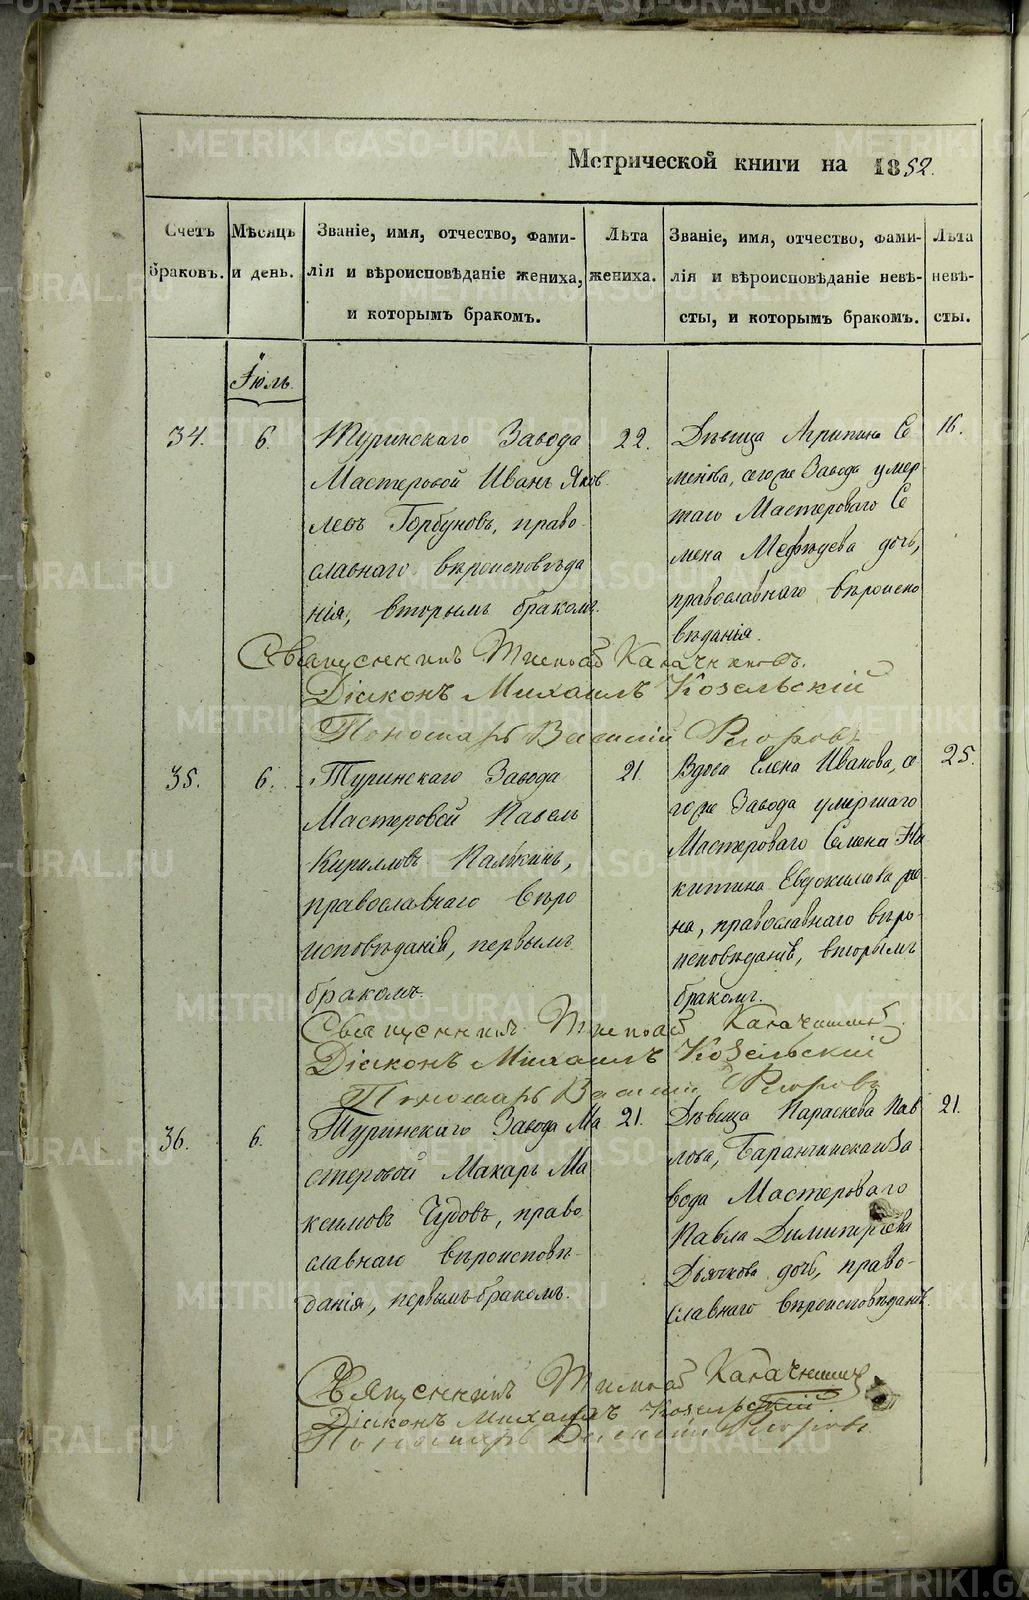 Метрической книги на 1852.
Счетъ браковъ.
Мѣсяцъ и день.
Званіе, имя, отчество, фами-
лія и вѣроисповѣданіе жениха,
и которымъ бракомъ.
Лѣта жениха.
Званіе, имя, отчество, фами-
лія и вѣроисповѣданіе невѣ-
сты, и которымъ бракомъ.
Лѣта невѣ-
сты.
Іюль.
34.
6.
Туринскаго Завода
Мастеровой Иванъ Яков
левъ Горбуновъ, право
славнаго вѣроисповѣда
нія, вторымъ бракомъ.
22.
Дѣвица Агрипина Се
менова, сегоже Завода умер
шаго Мастероваго Се
мена дочь,
православнаго вѣроиспо
вѣданія.
16.
Священникъ
Діаконъ Михаилъ Козельскій
Пономарь Василій
35.
6.
Туринскаго Завода
Мастеровой Павелъ
Кирилловъ Палкинъ,
православнаго вѣро
исповѣданія, первымъ
бракомъ.
21.
Вдова Елена Иванова, се
гоже Завода умершаго
Мастероваго Семена Ни
китина Евдокимова же
на, православнаго вѣро-
исповѣданія, вторымъ
бракомъ.
25.
Священникъ
Діаконъ Михаилъ Козельскій
Пономарь Василій
36.
6.
Туринскаго Завода Ма
стеровой Макаръ Ма
ксимовъ Чудовъ, право
славнаго вѣроисповѣ-
данія, первымъ бракомъ.
21.
Дѣвица Параскева Пав
лова, Баранчинскаго За
вода Мастероваго
Павла Димитріева
Дьячкова дочь, право-
славнаго вѣроисповѣданія.
21.
Священникъ
Діаконъ Михаилъ Козельскій
Пономарь Василій
METRIKI.GASO-URAL.RU